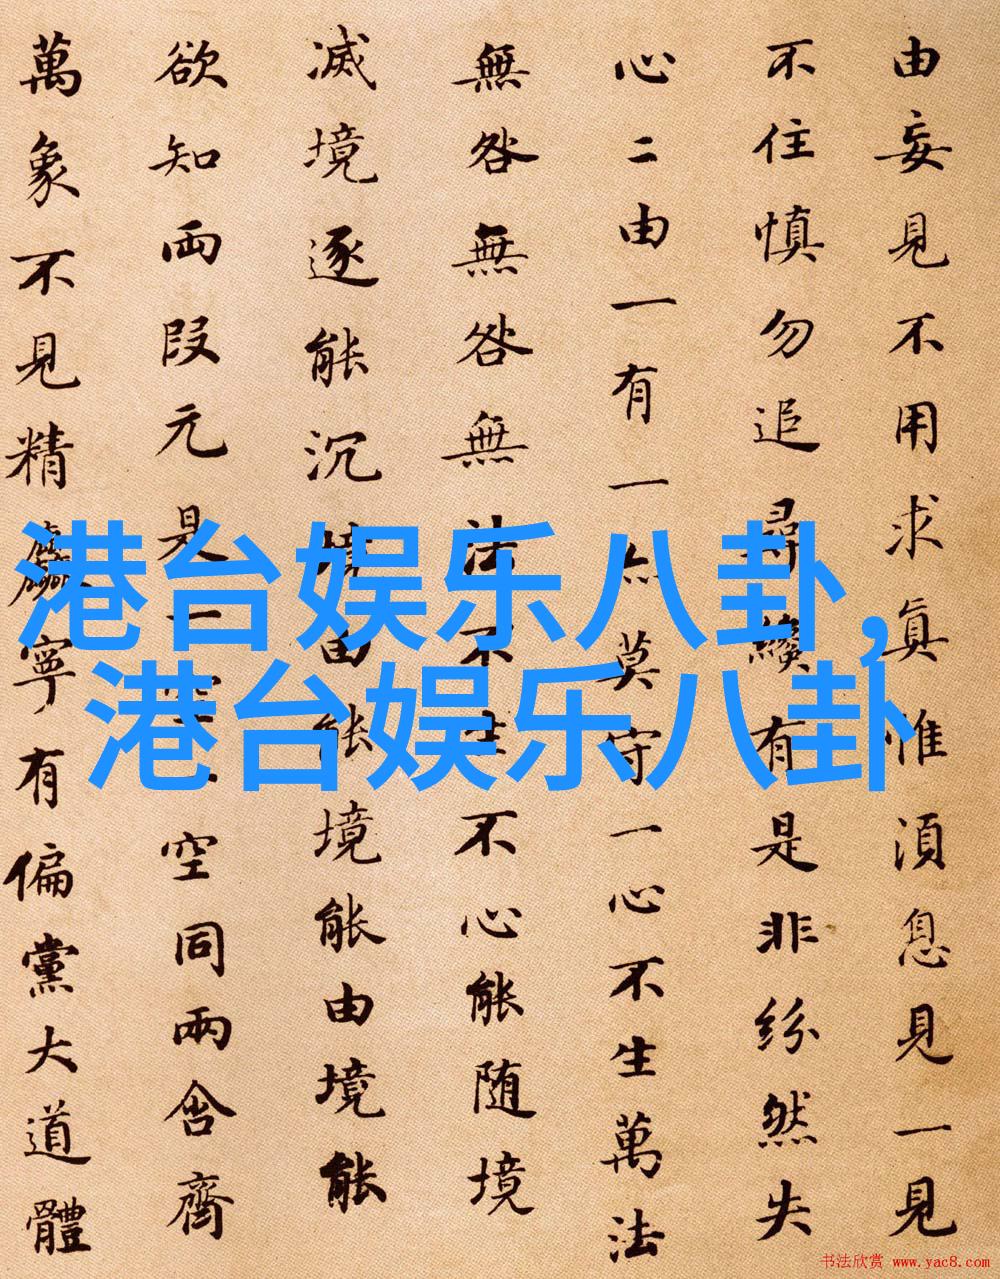 由妄見不用求真惟湏息見一見
不住慎勿追尋纔有是非紛然失
心二由一有一亦莫守一心不生萬法
無咎無咎無法不生不心能随境
滅境逐能沉境由能境能由境能
欲知両段元是一空一空同兩含齊
萬象不見精麤寧有偏黨大道體
港台娱乐八卦,
港台娱乐八卦
书法欣赏 www.yac8.com